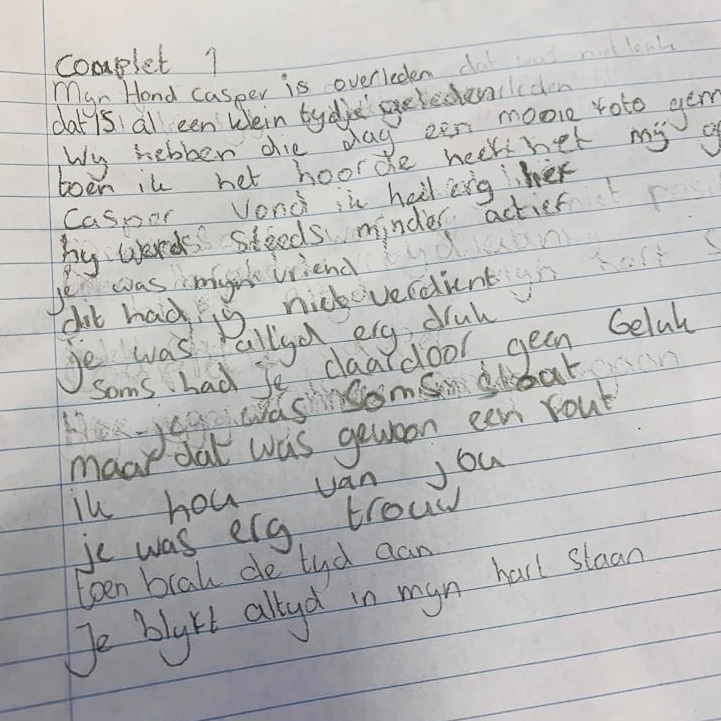 complet 1
Myn Hond casper is overleden dat was niet leuk
dat is al een klein tydje geleden
Wy hebben die dag een mooie foto gem
toen ik het hoorde heeft het mij
Casper vond ik heel erg
hy werd steeds minder actief
je was myn vriend
dit had jy niet verdient
je was altyd erg druk
soms had je daardoor geen Geluk
je was soms stoat
maar dat was gewoon een fout
ik hou van jou
je was erg trouw
toen brak de tyd aan
Je blykt altyd in myn hart staan